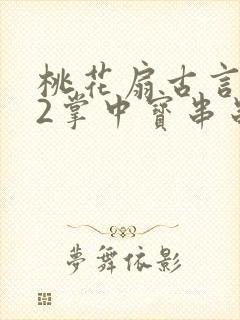 桃花扇古言
2掌中寶串
夢舞依影